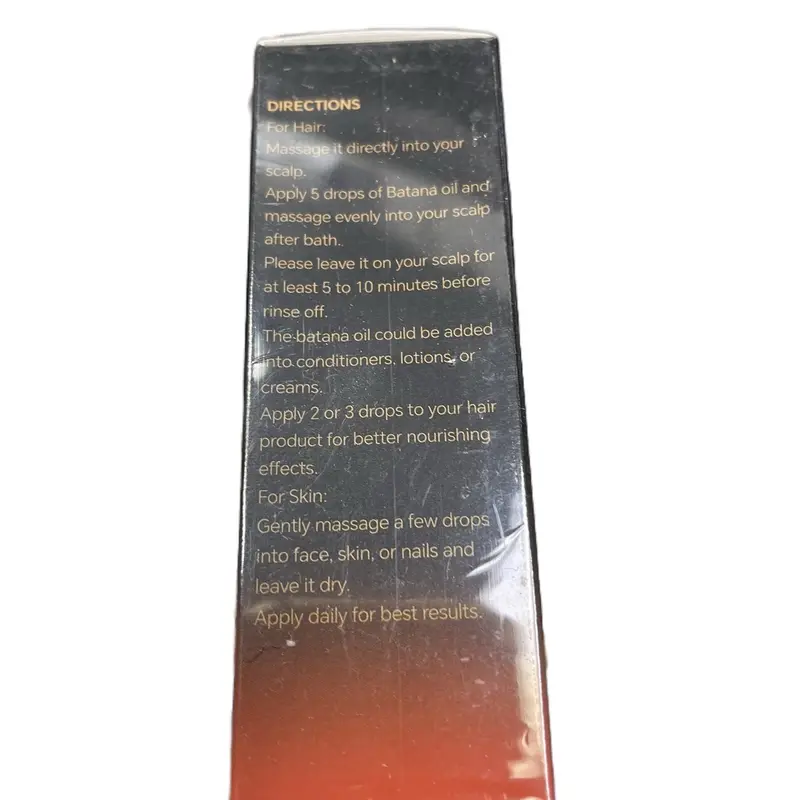 DIRECTIONS
For Hair:
Massage it directly into your
scalp.
Apply 5 drops of Batana oil and
massage evenly into your scalp
after bath.
Please leave it on your scalp for
at least 5 to 10 minutes before
rinse off.
The batana oil could be added
into conditioners, lotions, or
creams.
Apply 2 or 3 drops to your hair
product for better nourishing
effects.
For Skin:
Gently massage a few drops
into face, skin, or nails and
leave it dry.
Apply daily for best results.